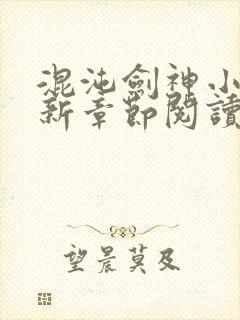 混沌劍神小
新章節閱讀
望晨莫及